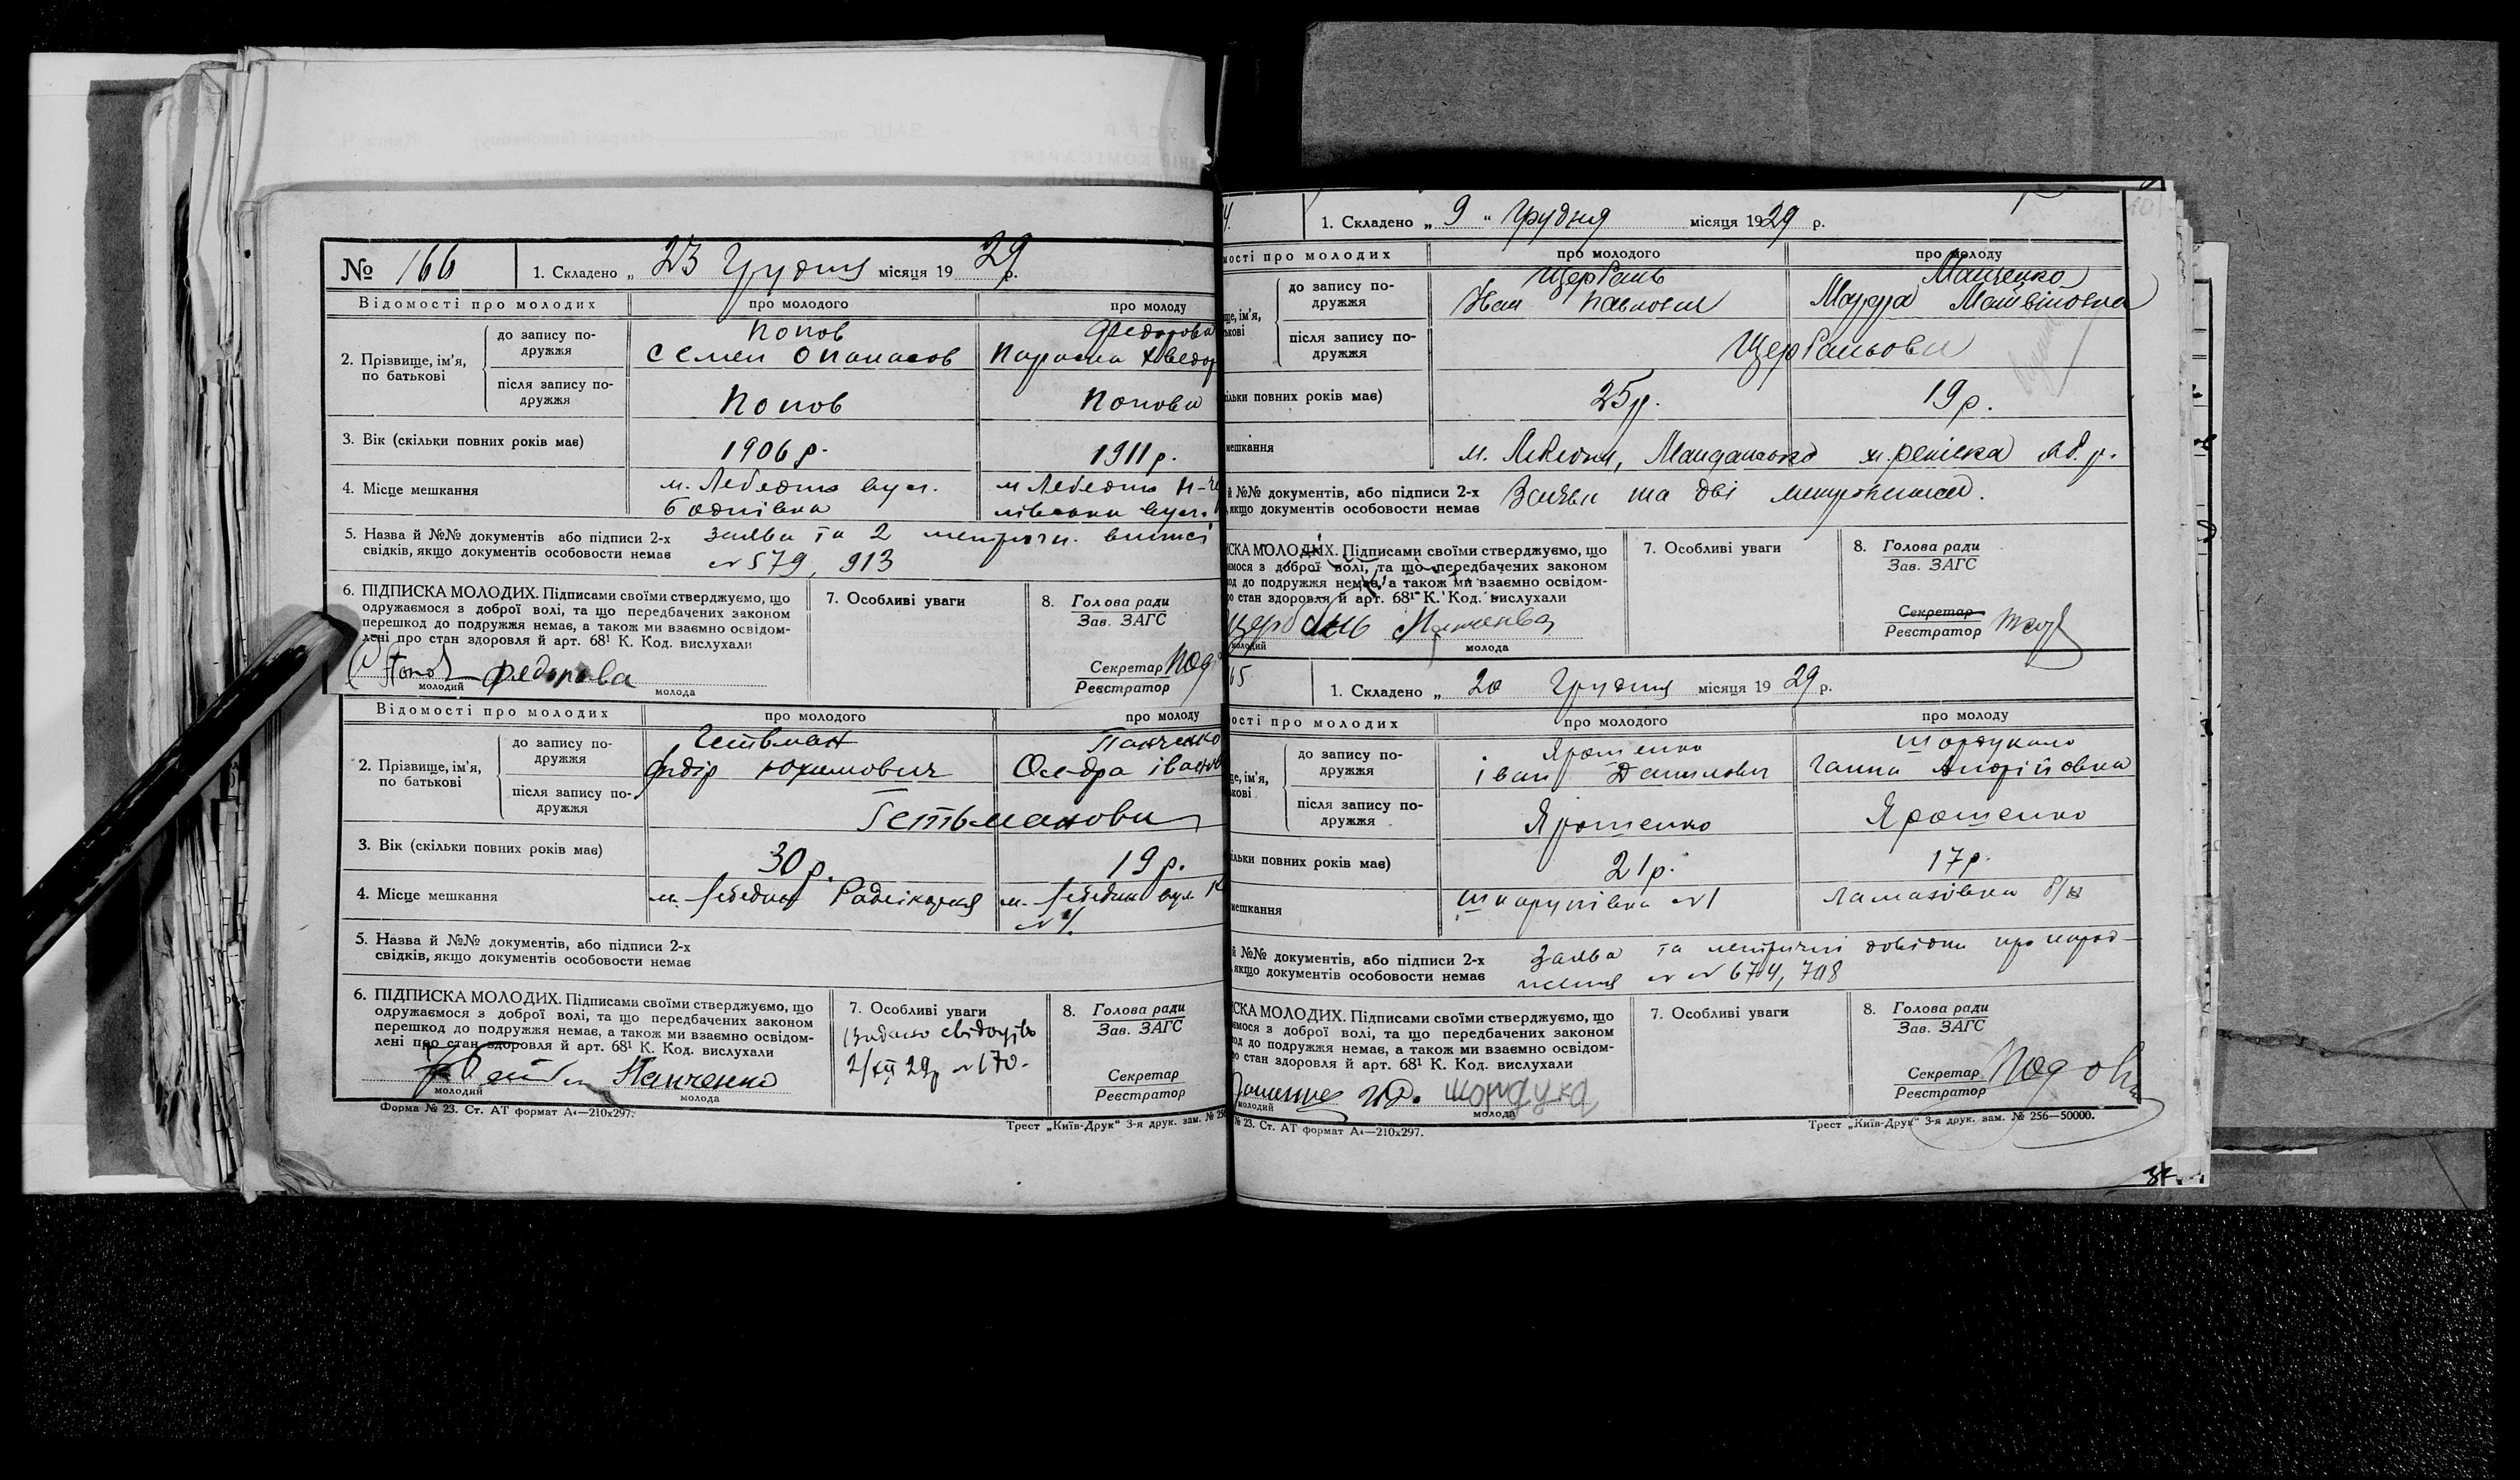 № 166
1. Складено „ 23 Грудня місяця 1929 р.
Відомості про молодих
про молодого
про молоду
2. Прізвище, ім'я,
по батькові
до запису по-
дружжя
Попов
Семен Опанасов
Федорова
Параска Хведор
після запису по-
дружжя
Попов
Попова
3. Вік (скільки повних років має)
1906 р.
1911 р.
4. Місце мешкання
м. Лебедин вул.
м Лебедин
вул.
5. Назва й №№ документів або підписи 2-х
свідків, якщо документів особовости немає
заява та 2 метричн. виписі
№ 579, 913
6. ПІДПИСКА МОЛОДИХ. Підписами своїми стверджуємо, що
одружаємося з доброї волі, та що передбачених законом
перешкод до подружжя немає, а також ми взаємно освідом-
лені про стан здоровля й арт. 68¹ К. Код. вислухали
Попов Федорова
молодий
молода
7. Особливі уваги
8. Голова ради
Зав. ЗАГС
Секретар
Реєстратор
Відомості про молодих
про молодого
про молоду
2. Прізвище, ім'я,
по батькові
до запису по-
дружжя
Гетьман
Федір Юхимович
Панченко
Олендра Іванов
після запису по-
дружжя
Гетьманови
3. Вік (скільки повних років має)
30 р.
19 р.
4. Місце мешкання
м. Лебедин
м. Лебедин вул.
5. Назва й №№ документів, або підписи 2-х
свідків, якщо документів особовости немає
6. ПІДПИСКА МОЛОДИХ. Підписами своїми стверджуємо, що
одружаємося з доброї волі, та що передбачених законом
перешкод до подружжя немає, а також ми взаємно освідом-
лені про стан здоровля й арт. 68¹ К. Код. вислухали
Панченко
молодий
молода
7. Особливі уваги
Видано свідоцтво
2/XII 29р №170.
8. Голова ради
Зав. ЗАГС
Секретар
Реєстратор
Форма № 23. Ст. АТ формат А₄—210х297.
Трест „Київ-Друк“ 3-я друк. зам. №
1. Складено „ 9 “ Грудня місяця 1929 р.
ості про молодих
про молодого
про молоду
ще, ім'я,
ькові
до запису по-
дружжя
Щербань
Іван Павлович
Мащенко
Марфа Матвіїовна
після запису по-
дружжя
Щербаньови
ільки повних років має)
25 р.
19 р.
мешкання
м. Лебедин,
й №№ документів, або підписи 2-х
якщо документів особовости немає
Заяви та дві
СКА МОЛОДИХ. Підписами своїми стверджуємо, що
ємося з доброї волі, та що передбачених законом
од до подружжя немає, а також ми взаємно освідом-
о стан здоровля й арт. 68¹ К. Код. вислухали
Щербань
молодий
молода
7. Особливі уваги
8. Голова ради
Зав. ЗАГС
Секретар
Реєстратор
65
1. Складено „ 20 Грудня місяця 1929 р.
ості про молодих
про молодого
про молоду
ще, ім'я,
кові
до запису по-
дружжя
Ярошенко
Іван Данилович
Ганна Андріївна
після запису по-
дружжя
Ярошенко
Ярошенко
ільки повних років має)
21 р.
17 р.
мешкання
Шкарупівка №1
й №№ документів, або підписи 2-х
якщо документів особовости немає
Заява та метричні довідки про народ-
ження № № 674, 708
СКА МОЛОДИХ. Підписами своїми стверджуємо, що
ємося з доброї волі, та що передбачених законом
од до подружжя немає, а також ми взаємно освідом-
о стан здоровля й арт. 68¹ К. Код. вислухали
шордука
молодий
молода
7. Особливі уваги
8. Голова ради
Зав. ЗАГС
Секретар
Реєстратор
№ 23. Ст. АТ формат А₄—210х297.
Трест „Київ-Друк“ 3-я друк. зам. № 256—50000.